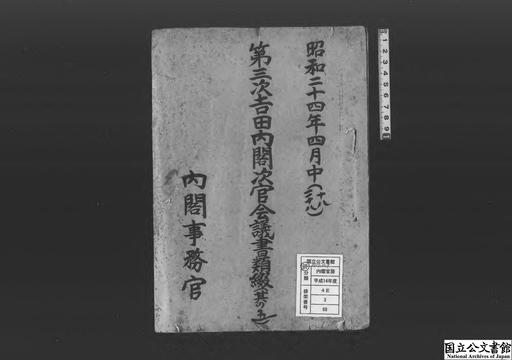 昭和二十四年四月中
第三次吉田内閣次官会議書類綴(其の五)
内閣事務官
国立公文書館
分類
内閣官房
平成14年度
4E
3
排架番号
国立公文書館
National Archives of Japan
1 2 3 4 5 6 7 8 9